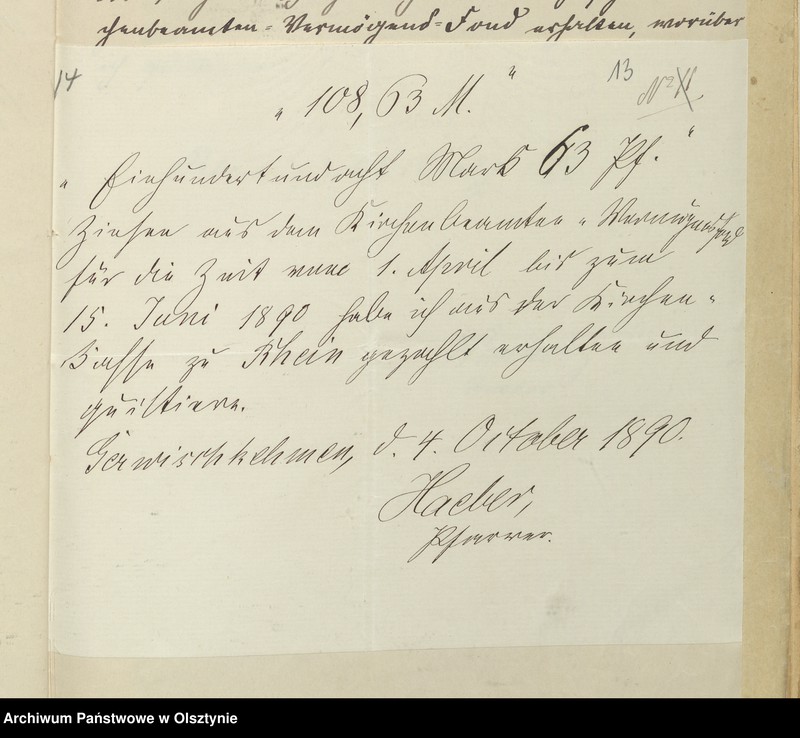 chenbeamten-Vermögend-Fond erhalten, worüber
14
13
No XI.
„ 108,63 M. "
„ Einhundertundacht Mark 63 Pf. "
Zinsen aus dem Kirchenbeamten-Vermögensfond
für die Zeit vom 1. April bis zum
15. Juni 1890 habe ich aus der Kirchen-
Kasse zu Rhein gezahlt erhalten und
quittiere.
Gerwischkehmen, d. 4. October 1890.
Haeber,
Pfarrer.
Archiwum Państwowe w Olsztynie